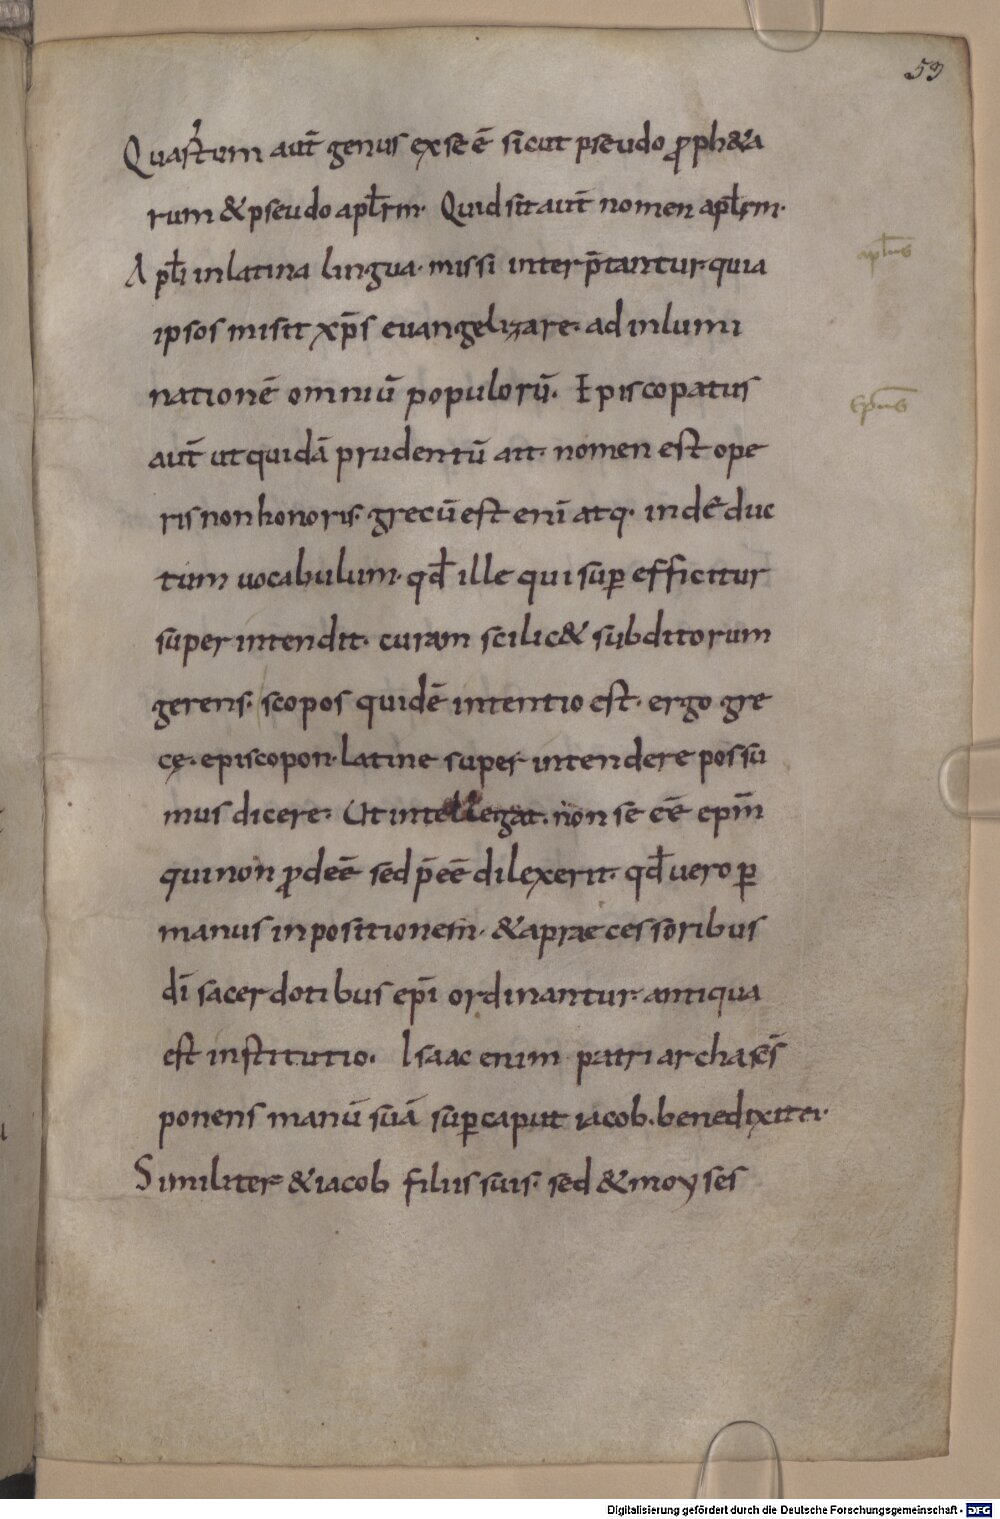 53
Quartum aut̄ genus ex se ē sicut pseudo ꝓph&a
rum & pseudo apl̄rm· Quid sit aut̄ nomen apl̄rm·
Apl̄i in latina lingua· missi interp̄tantur· quia
aplus
ipsos misit xp̄s euangelizare· ad inlumi
nationē omniū populorū. Episcopatus
Epus
aut̄ ut quidā prudentū ait· nomen est ope
ris non honoris· grecū est enī atq· inde duc
tum uocabulum· qd̄ ille qui suꝑ efficitur
super intendit· curam scilic& subditorum
gerens· scopos quidē intentio est· ergo gre
cę· episcopon· latine super intendere possu
mus dicere· Ut intellegat· non se eē epm̄
qui non ꝓdeē sed p̄eē dilexerit· qd̄ uero ꝑ
manus inpositionem· & a praecessoribus
dī sacerdotibus epī ordinantur· antiqua
est institutio· Isaac enim patriarcha sc̄s
ponens manū suā suꝑ caput iacob· benedixit ei·
Similiter & iacob filiis suis· sed & moyses
Digitalisierung gefördert durch die Deutsche Forschungsgemeinschaft - DFG